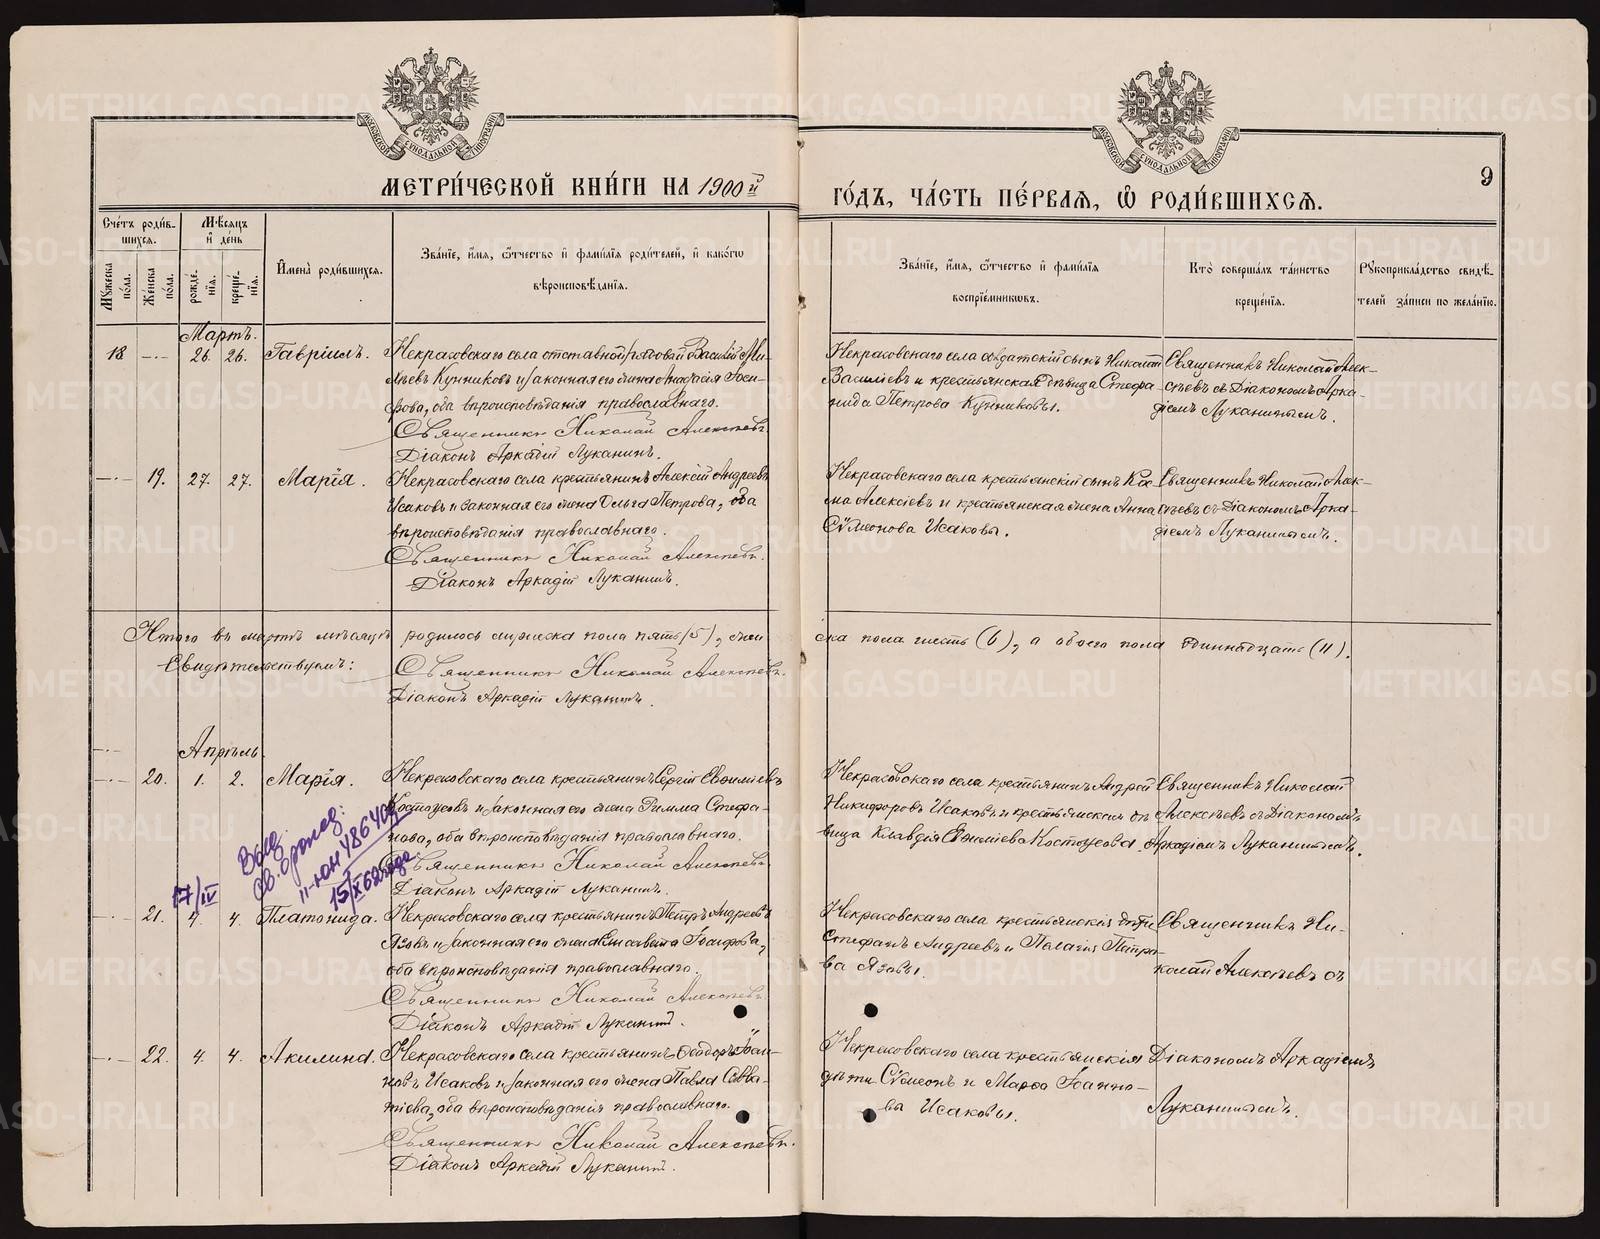 МЕТРИ́ЧЕСКОЙ КНИ́ГИ НА 1900й
ГО́ДЪ, ЧА́СТЬ ПЕ́РВАЯ, Ѽ РОДИ́ВШИХСЯ.
9
Сче́тъ роди́в-
шихся.
Мѣ́сяцъ
и҆ де́нь
И҆мена̀ роди́вшихся.
Зва́нїе, и҆́мя, ѻ҆́тчество и҆ фами́лїя роди́телей, и҆ како́гѡ
вѣроисповѣ́данїя.
Зва́нїе, и҆́мя, ѻ҆́тчество и҆ фами́лїя
воспрїе́мникѡвъ.
Кто̀ соверша́лъ та́инство
креще́нїя.
Рꙋкоприкла́дство свидѣ́-
телей за́писи по жела́нїю.
Мꙋ́жеска по́ла.
Же́нска по́ла.
рожде́нїя.
креще́нїя.
Мартъ.
18 -.- 26. 26. Гавріилъ.
Некрасовскаго села отставной рядовой Василій Ми-
хѣевъ Кунниковъ и законная его жена Анастасія Іоси-
фова, оба вѣроисповѣданія православнаго.
Священникъ Николай Алексѣевъ.
Діаконъ Аркадій Луканинъ.
Некрасовскаго села солдатскій сынъ Николай
Василіевъ и крестьянская дѣвица Стефа-
нида Петрова Кунниковы.
Священникъ Николай Алек-
сѣевъ съ Діакономъ Арка-
діемъ Луканинымъ.
-.- 19. 27. 27. Марія.
Некрасовскаго села крестьянинъ Алексій Андреевъ
Исаковъ и законная его жена Ольга Петрова, оба
вѣроисповѣданія православнаго.
Священникъ Николай Алексѣевъ.
Діаконъ Аркадій Луканинъ.
Некрасовскаго села крестьянскій сынъ Кос-
ма Алексіевъ и крестьянская жена Анна
Сѵмеонова Исаковы.
Священникъ Николай Алек-
сѣевъ съ Діакономъ Арка-
діемъ Луканинымъ.
Итого въ мартѣ мѣсяцѣ родилось мужеска пола пять (5), жен-
ска пола шесть (6), а обоего пола одиннадцать (11).
Свидѣтельствуемъ: Священникъ Николай Алексѣевъ.
Діаконъ Аркадій Луканинъ.
Апрѣль.
-.- 20. 1. 2. Марія.
Некрасовскаго села крестьянинъ Сергій Евѳиміевъ
Костоусовъ и законная его жена Римма Стефа-
нова, оба вѣроисповѣданія православнаго.
Священникъ Николай Алексѣевъ.
Діаконъ Аркадій Луканинъ.
Некрасовскаго села крестьянинъ Андрей
Никифоровъ Исаковъ и крестьянская дѣ-
вица Клавдія Евѳиміева Костоусова.
Священникъ Николай
Алексѣевъ съ Діакономъ
Аркадіемъ Луканинымъ.
17/IV
15/X 62 года
-.- 21. 4. 4. Платонида.
Некрасовскаго села крестьянинъ Петръ Андреевъ
Язовъ и законная его жена Елисавета Іосифова,
оба вѣроисповѣданія православнаго.
Священникъ Николай Алексѣевъ.
Діаконъ Аркадій Луканинъ.
Некрасовскаго села крестьянскія дѣти
Стефанъ Андреевъ и Пелагія Петро-
ва Язовы.
Священникъ Ни-
колай Алексѣевъ съ
-.- 22. 4. 4. Акилина.
Некрасовскаго села крестьянинъ Ѳеодоръ Іоан-
новъ Исаковъ и законная его жена Павла Савва-
тіева, оба вѣроисповѣданія православнаго.
Священникъ Николай Алексѣевъ.
Діаконъ Аркадій Луканинъ.
Некрасовскаго села крестьянскія
дѣти Сѵмеонъ и Марѳа Іоанно-
вы Исаковы.
Діакономъ Аркадіемъ
Луканинымъ.